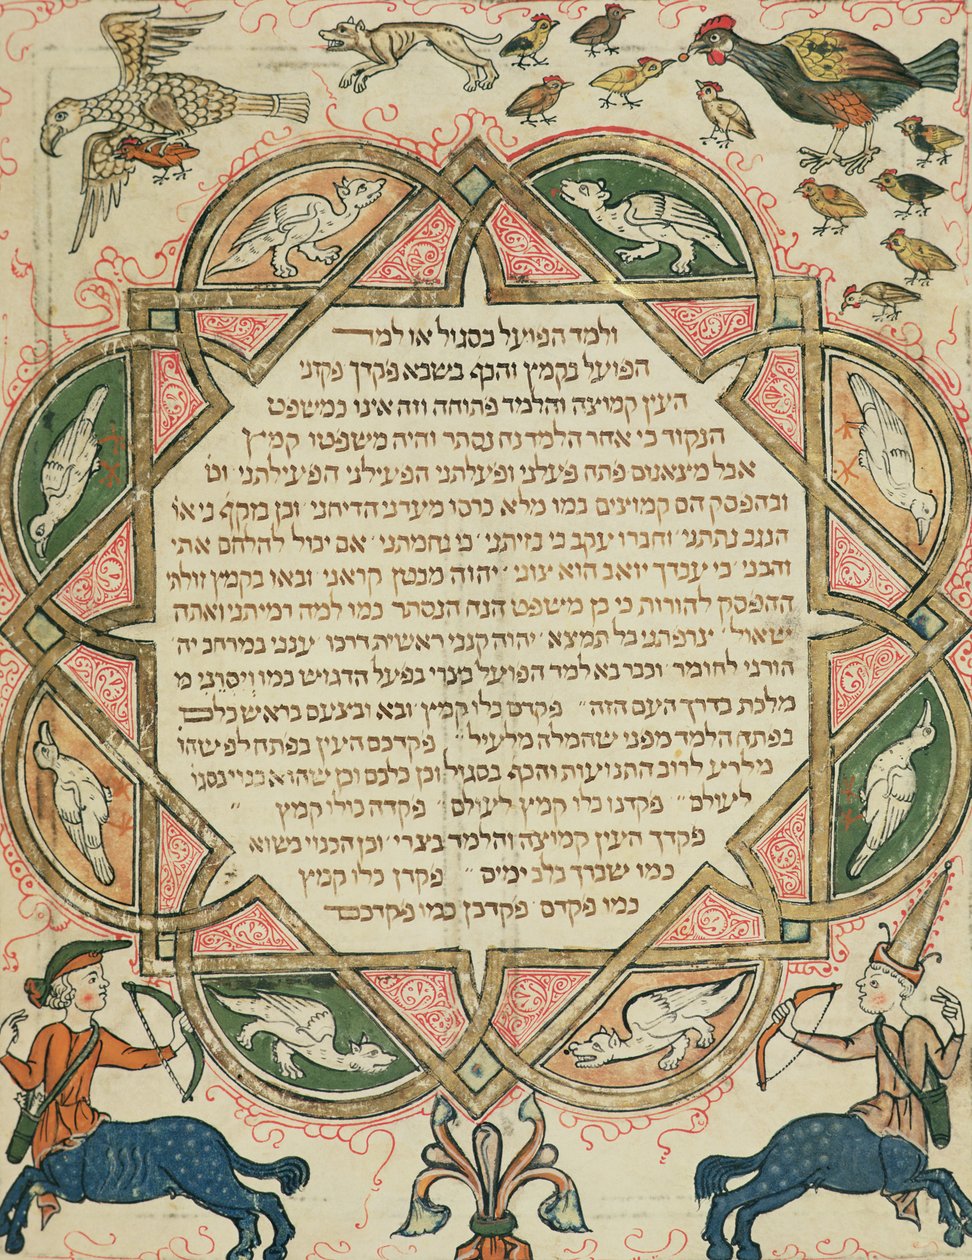 ולמד הפועל בסגול או למד
הפועל בקמץ והכף בשבא פקדך פקדני
העין קמוצה והלמד פתוחה וזה אינו כמשפט
הנקוד כי אחר הלמד נח נסתר והיה משפטו קמיץ
אבל מצאנום פתח פעלני ופעלתני הפעילני הפעילתני וט
ובהפסק הם קמוצים כמו מלא כרסו מעדני הדיחני וכן בזקף כי או
הנגב נתתני וחברו עקב כי בזיתני כי נחמתני אם יוכל להלחם אתי
והכני כי עבדך יואב הוא צוני יהוה מבטן קראני ובאו בקמץ זולתי
ההפסק להורות כי כן משפט הנח הנסתר כמו למה רמיתני ואתה
שאול צרפתני בל תמצא יהוה קנני ראשית דרכו ענני במרחב יה
הורני לחומר וכבר בא למד הפועל בצרי בפיעל הדגוש כמו ויסרני מ
מלכת בדרך העם הזה פקדם כלו קמץ ובא וביצעם בראש כלם
בפתח הלמד מפני שהמלה מלעיל פקדכם העין בפתח לפי שהו
מלרע לרוב התנועות והכף בסגול וכן כלכם וכן שהוא כנוי נסגו
לעולם פקדנו כלו קמץ לעולם פקדה כולו קמץ
פקדך העין קמוצה והלמד בצרי וכן הכנוי בשוא
כמו שברך בלב ימים פקדן כלו קמץ
כמו פקדם פקדכן כמו פקדכם